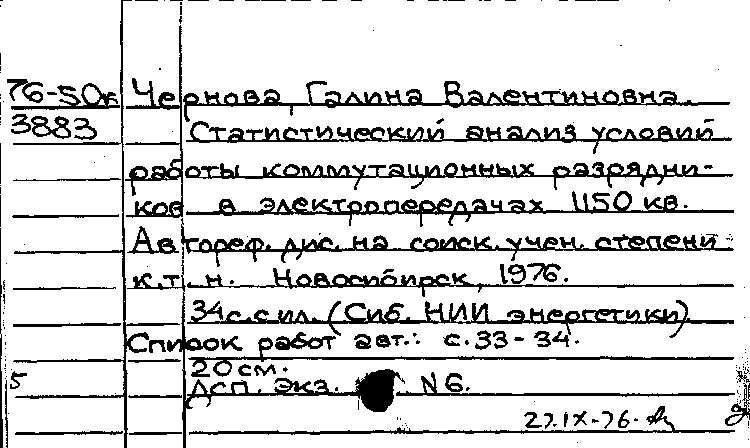 76-50к Чернова, Галина Валентиновна.
3883 Статистический анализ условий
работы коммутационных разрядни-
ков в электропередачах 1150 кв.
Автореф. дис. на соиск. учен. степени
к.т.н. Новосибирск, 1976.
34с. с ил. (Сиб. НИИ энергетики)
Список работ авт.: с. 33-34.
20 см.
5 ДСП. Экз. N 6.
27.IX-76.